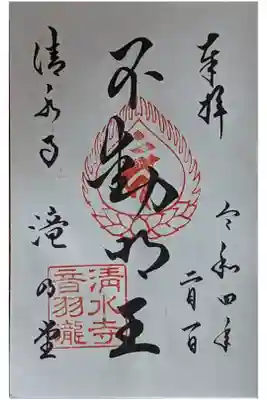 奉拝
令和四年
二月一日
不動明王
清水寺
滝乃堂
清水寺
音羽龍